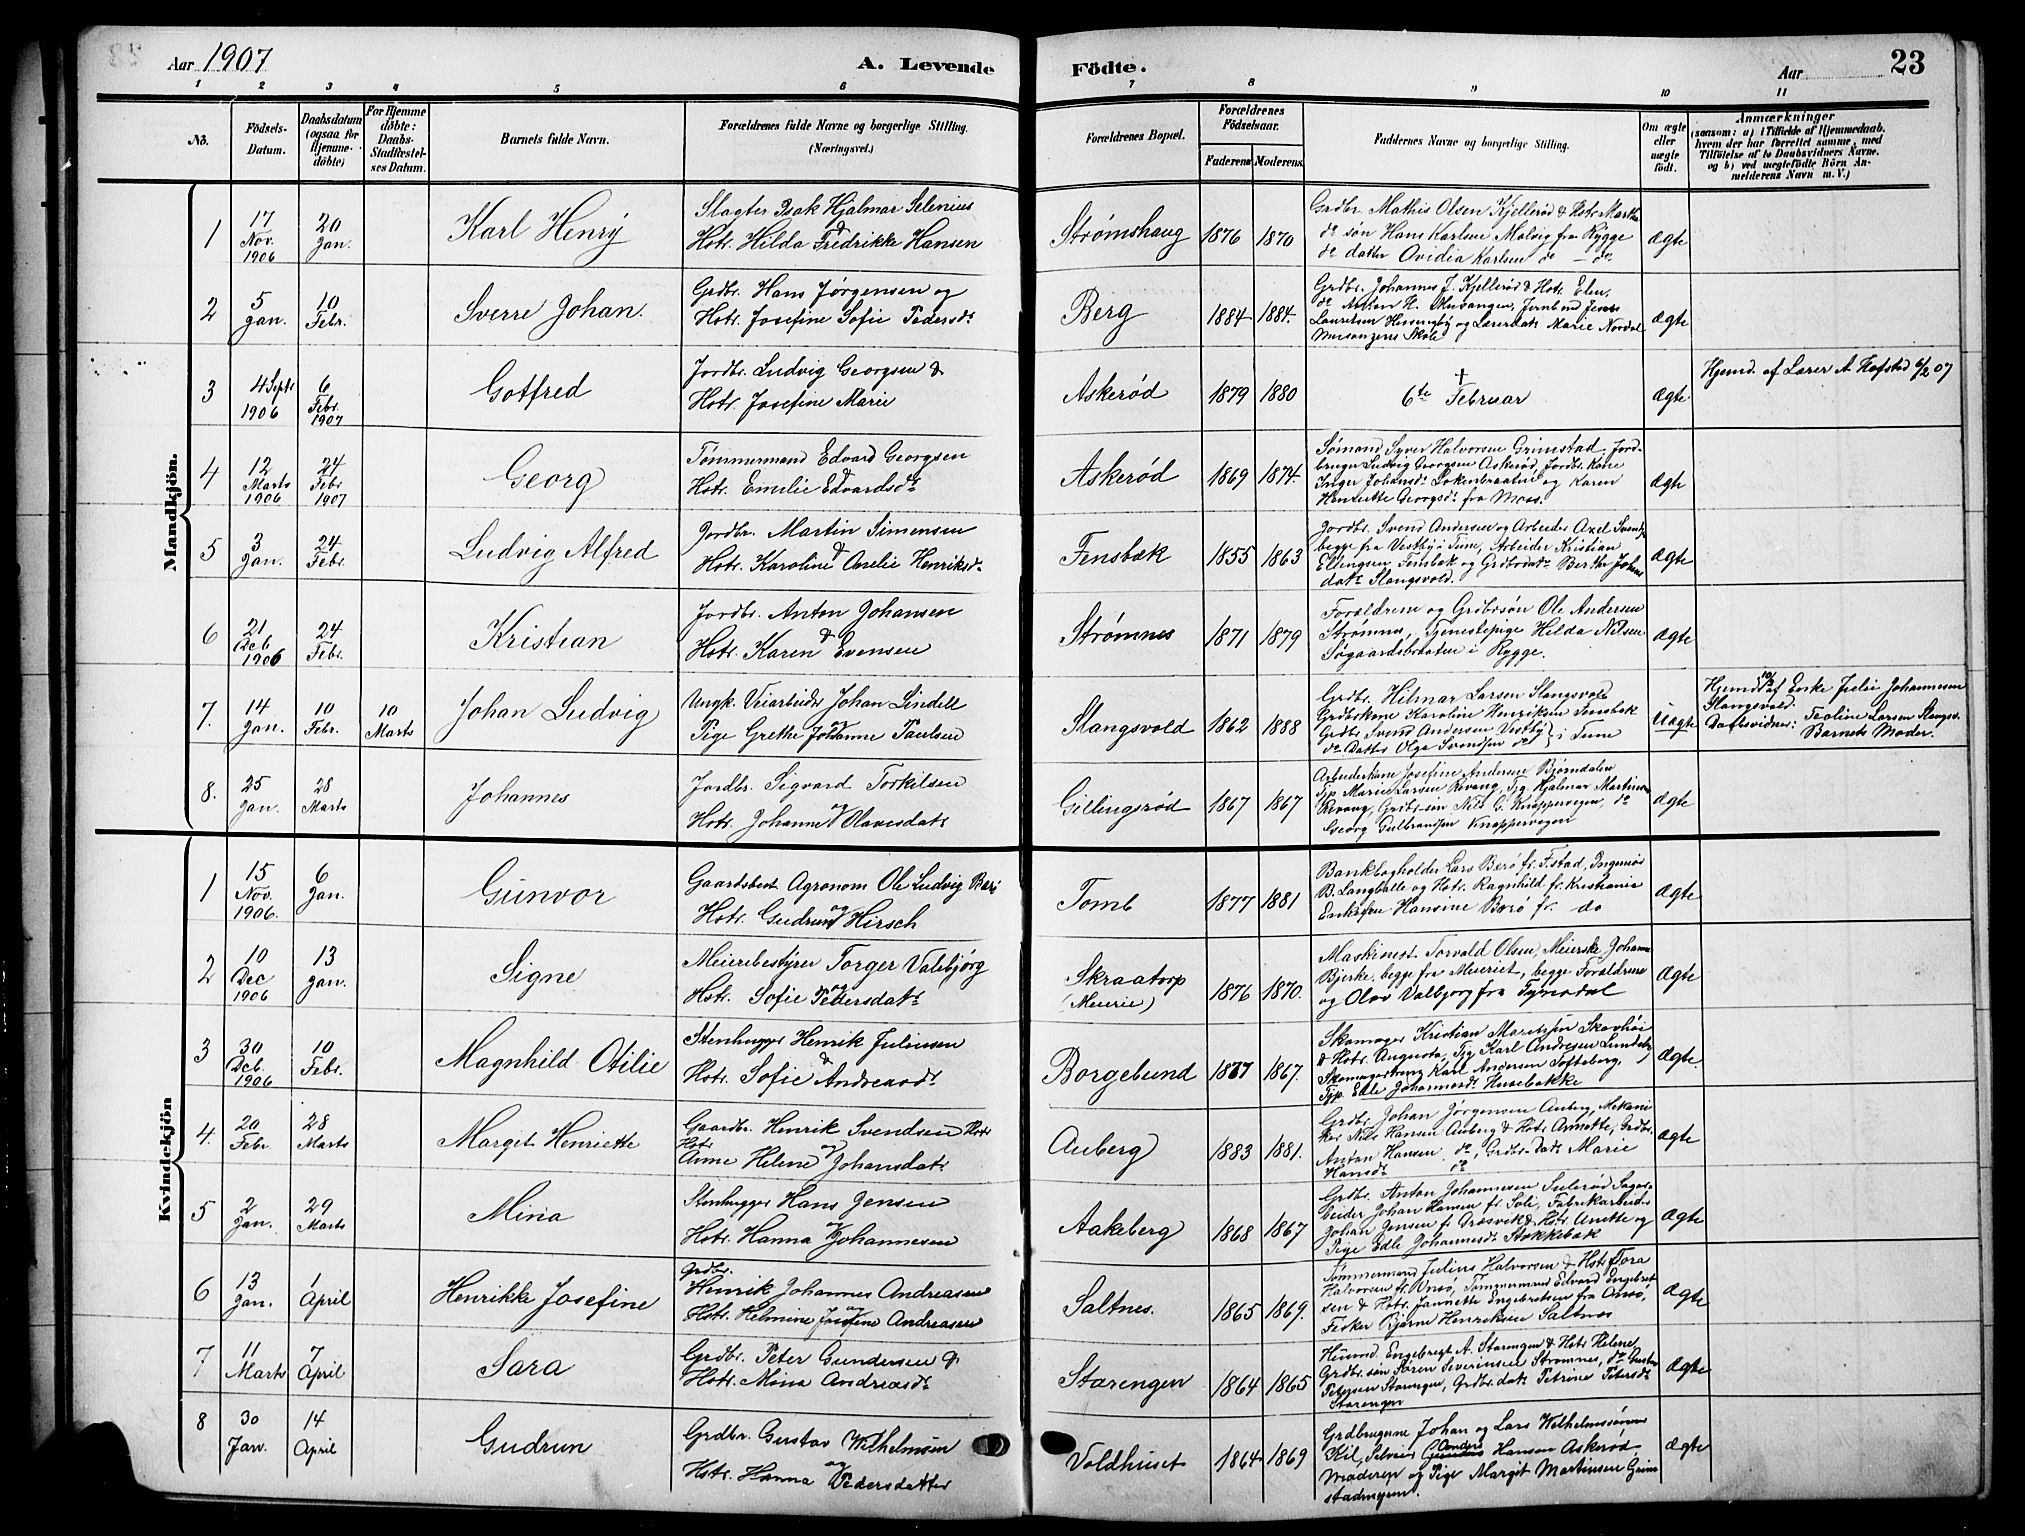 Aar 1907
A. Levende Födte.
Aar
23
1 2 3 4 5 6 7 8 9 10 11
No.
Födsels-Datum.
Daabsdatum (ogsaa for Hjemme-döbte)
For Hjemme döbte: Daabs-Stadfæstel-ses Datum.
Barnets fulde Navn.
Forældrenes fulde Navne og borgerlige Stilling. (Næringsvei.)
Forældrenes Bopæl.
Forældrenes Födselsaar.
Faderens Moderens.
Faddernes Navne og borgerlige Stilling.
Om ægte eller uægte födt.
Anmærkninger
(saasom: a) i Tilfælde af Hjemmedaab, hvem der har forrettet samme, med Tilföielse af to Daabsvidners Navne, og b) ved uægtefödte Börn An-melderens Navn m. V.)
Mandkjön.
1 17 Nov. 1906 20 Jan. Karl Henry
Slagter Isak Hjalmar Selenius
& Hstr. Hilda Fredrikke Hansen
Strømshaug 1876 1870
Grdbr. Mathis Olsen Kjellerød & Hstr. Marthe
do søn Hans Karlsen Malvig fra Rygge
do datter Ovidia Karlsen do - do
Ægte
2 5 Jan. 10 Febr. Sverre Johan.
Grdbr. Hans Jørgensen og
Hstr. Josefine Sofie Pedersdt
Berg 1884 1884.
Grdbr. Johannes J. Kjellerød & Hstr. Elen,
do Anton H. Musangen, Jernb.md Jens
Lauritsen Husingby og Lærerdatr Marie Nordal
Musangens Skole
Ægte
3 4 Septr 1906 6 Febr. 1907 Gotfred
Jordbr. Ludvig Georgsen &
Hstr. Josefine Marie
Askerød 1879 1880
† 6te Februar
Ægte
Hjemd. af Lærer A. Hafstad 6/2 07
4 12 Marts 1906 24 Febr 1907 Georg
Tømmermand Edvard Georgsen
& Hstr. Emilie Edvardsdt
Askerød 1869 1874.
Sømand Syver Halvorsen Grimstad, Jord-
bruger Ludvig Georgsen Askerød, Jordbr. Kone
Inger Johansdt Løkenbraaten og Karen
Henriette Georgsdt fra Moss.
Ægte
5 3 Jan. 24 Febr. Ludvig Alfred
Jordbr. Martin Simensen
& Hstr. Karoline Amelie Henriksdt
Fensbæk 1855 1863
Jordbr. Svend Andersen og Arbeider Axel Svends.
begge fra Vestby i Tune, Arbeider Kristian
Ellingsen Fensbæk og Grdbrdatr Berthe Johans
datr Slangsvold.
Ægte
6 21 Decb 1906 24 Febr. Kristian
Jordbr. Anton Johansen
& Hstr. Karen Evensen
Strømnes 1871 1879
Forældrene og Grdbrsøn Ole Andersen
Strømnes, Tjenestepige Hilda Nilsen
Søgaardsbraaten i Rygge.
Ægte
7. 14 Jan. 10 Febr. 10 Marts Johan Ludvig
Ungk. Veiarbeider Johan Lindell
og Pige Grethe Johanne Paulsen
Slangsvold 1862 1888
Grdbr. Hilmar Larsen Slangsvold
Grdbrskone Karoline Henriksen Fensbæk
Grdbr Svend Andersen Vestby
do Datter Olga Svendsen do } i Tune
Uægte
Hjemd 10/2 af Enke Julie Johannesen
Slangsvold.
Daabsvidner: Teoline Larsen Slangsv.
Barnets Moder.
8. 25 Jan. 28 Marts Johannes
Jordbr. Sigvard Torkilsen
og Hstr. Johanne Olavesdatr
Gillingsrød 1867 1867
Arbeiderkone Josefine Andersen Bjørndalen
Tjp. Marie Larsen Revaug, Tjg. Hjalmar Martinsen
Revaug, Grdbr.søn Nils G. Knappervegen, do
Georg Gulbrandsen Knappervegen
Ægte
Kvindekjön
1 15 Nov. 1906. 6 Jan. Gunvor
Gaardsbest. Agronom Ole Ludvig Berø
og Hstr. Gudrun Hirsch
Tomb 1877 1881
Bankbogholder Lars Berø fr. F.stad, Ingeniør
B. Langballe og Hstr. Ragnhild fr. Kristiania
Enkefru Hansine Berø fr. do
Ægte
2 10 Dec 1906 13 Jan. Signe
Meieribestyrer Torger Valbjørg
og Hstr. Sofie Pedersdatr
Skraatorp (Meierie) 1876 1870.
Maskinest. Torvald Olsen, Meierske Johanne
Bjerke, begge fra Meieriet, begge Forældrene
og Olav Valbjørg fra
Ægte
3 30 Dcb. 1906 10 Febr. Magnhild Otilie
Stenhugger Henrik Juliussen
& Hstr. Sofie Andreasdt
Borgebund 1877 1867.
Skomager Kristian Maritssen Skovhøi
& Hstr. Augusta, Tjg Karl Andresen Lundeby,
Skomagersvend Karl Andersen Tofteberg,
Tjp. Edle Johannesdt Husebakke
Ægte.
4. 20 Febr. 28 Marts Margit Henriette
Gaardbr. Henrik Svendsen
og Hstr Anne Helene Johansdatr
Auberg 1883 1881.
Grdbr. Johan Jørgensen Auberg, Mekani
ker Nils Hansen Auberg & Hstr. Annette, Grdbr.
Anton Hansen do, Grdbr. datr Marie
Hansdt do
Ægte
5 2 Jan. 29 Marts Mina
Stenhugger Hans Jensen
og Hstr. Hanna Johannesen
Aakeberg 1868 1867
Grdbr. Anton Johannesen Sulerød, Sagar-
beider Johan Hansen fr. Soli, Fabrikarbeider
Johan Jensen f. Græsvik & Hstr. Anette og
Pige Edle Johannesdt Stokkebæk
Ægte
6 13 Jan. 1 April Henrikke Josefine
Grdbr. Henrik Johannes Andreasen
og Hstr. Helmine Josefine Andreasen
Saltnes. 1865 1869.
Tømmermand Julius Halvorsen & Hstr Tora
Halvorsen fr. Onsø, Tømmermand Edvard Engebret
sen & Hstr. Jannette Engebretsen fra Onsø,
Fisker Bjarne Henriksen Saltnes
Ægte
7 11 Marts 7 April Sara
Grdbr. Peter Gundersen &
Hstr. Mina Andreasdt
Starengen 1864 1865
Husmd. Engebregt A. Starengen & Hstr Helene,
Grdbr. søn Søren Severinsen Strømnes, do Gustav
Petersen Starengen, Grdbr. datr Petrine Petersdt
Starengen
Ægte
8 30 Jan. 14 April Gudrun
Grdbr. Gustav Wilhelmsen
og Hstr. Hanna Pedersdatter
Voldhuset 1864 1869
Grdbrugerne Johan og Lars Wilhelmssønner
Kil, Selveier Anders Hansen Askerød,
Moderen og Pige Margit Martinsen Grim
stadmyren.
Ægte